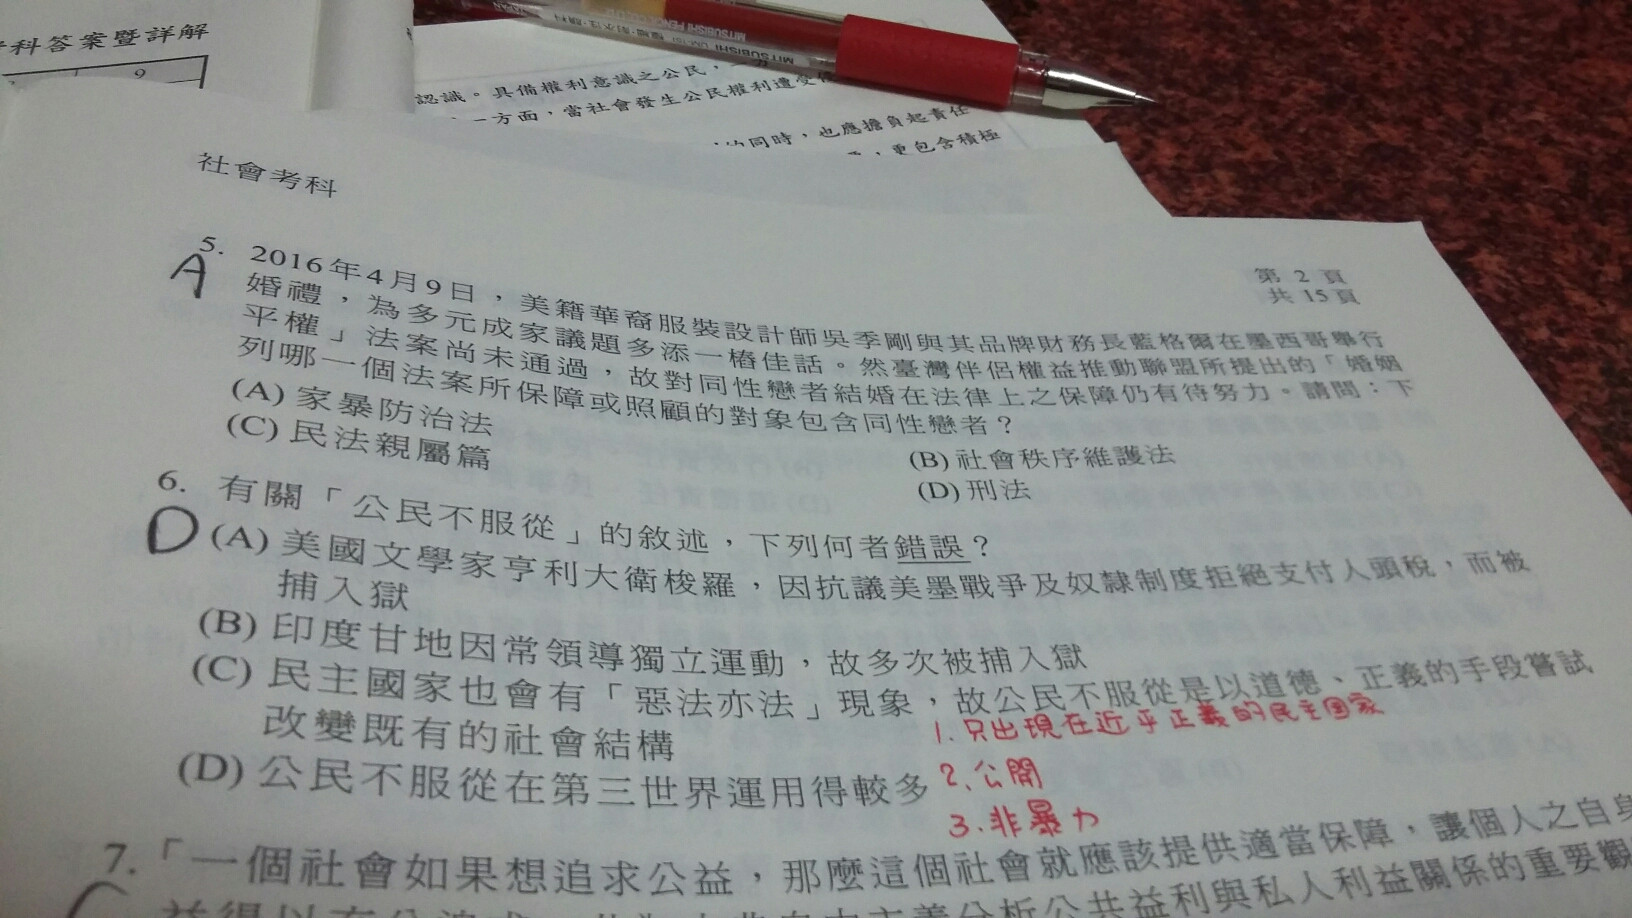 科答案暨詳解
9
認識。具備權利意識之公民，
一方面，當社會發生公民權利遭受
同時，也應擔負起責任
，更包含積極
MITSUBISHI PENCIL
MITSUBISHI UM-151
社會考科
第 2 頁
共 15 頁
5. 2016年4月9日，美籍華裔服裝設計師吳季剛與其品牌財務長藍格爾在墨西哥舉行
A
婚禮，為多元成家議題多添一樁佳話。然臺灣伴侶權益推動聯盟所提出的「婚姻
平權」法案尚未通過，故對同性戀者結婚在法律上之保障仍有待努力。請問：下
列哪一個法案所保障或照顧的對象包含同性戀者？
(A) 家暴防治法
(B) 社會秩序維護法
(C) 民法親屬篇
(D) 刑法
6. 有關「公民不服從」的敘述，下列何者錯誤？
D
(A) 美國文學家亨利大衛梭羅，因抗議美墨戰爭及奴隸制度拒絕支付人頭稅，而被
捕入獄
(B) 印度甘地因常領導獨立運動，故多次被捕入獄
(C) 民主國家也會有「惡法亦法」現象，故公民不服從是以道德、正義的手段嘗試
改變既有的社會結構
(D) 公民不服從在第三世界運用得較多
1. 只出現在近乎正義的民主國家
2. 公開
3. 非暴力
7. 「一個社會如果想追求公益，那麼這個社會就應該提供適當保障，讓個人之自身
C
分析公共益利與私人利益關係的重要觀